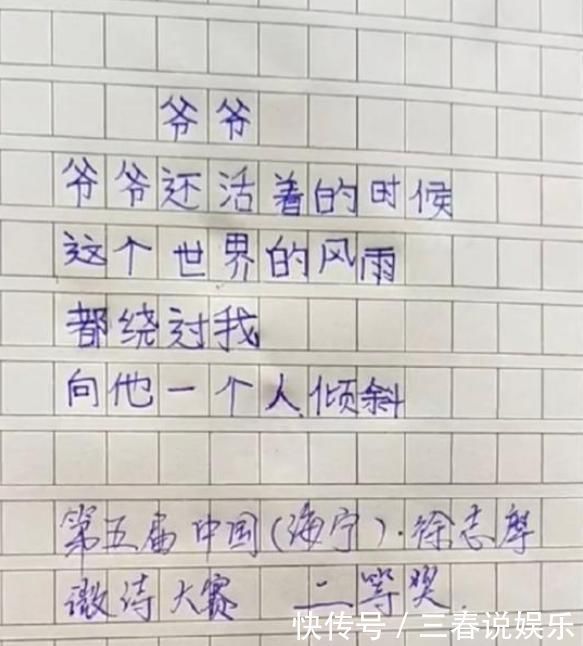 爷爷
爷爷还活着的时候
这个世界的风雨
都绕过我
向他一个人倾斜
第五届中国(海宁)·徐志摩
微诗大赛 二等奖
快传号/三春说娱乐